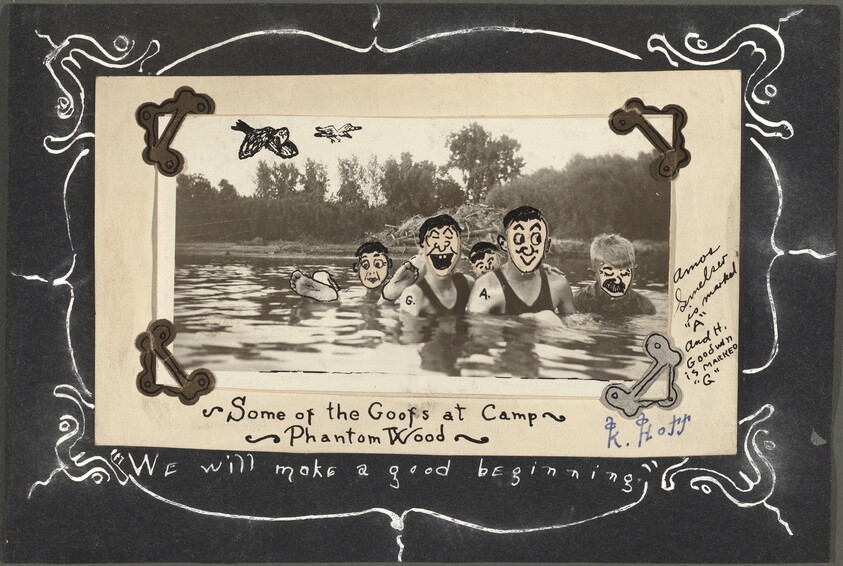 G.
A.
Amos
Smelser
is marked
"A"
and H.
Goodwin
is MARKED
"G"
Some of the Goofs at Camp
Phantom Wood
K. Hoff
"WE will make a good beginning."